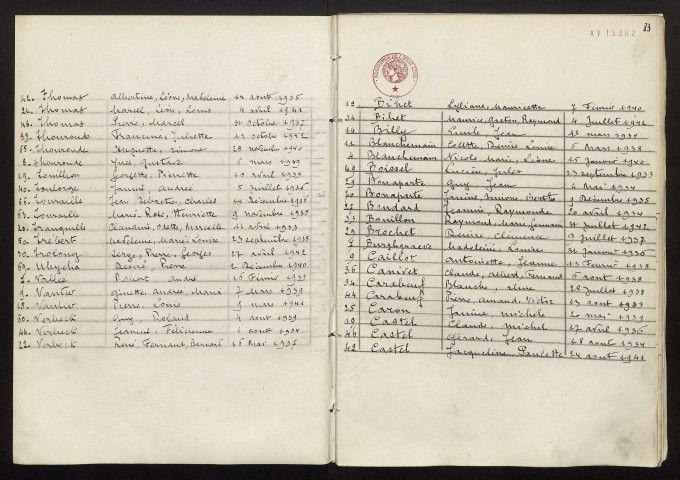 42. Thomas Albertine, Léone, Madeleine 14 aout 1935
24. Thomas Marcel, Léon, Louis 4 avril 1941
43. Thomas Pierre, Marcel 31 octobre 1937
Thouroude Francine, Juliette 12 octobre 1932
55. Thouroude Huguette, Simone 28 novembre 1940
8. Thouroude Yves, Gustave 5 mars 1939
19. Touillon Georgette, Pierrette 10 avril 1939
40. André 5 juillet 1936
66. Touraille Jean Sébastien, Charles 14 Décembre 1936
63. Touraille Marie Rose, Henriette 9 novembre 1933
20. Tranquille Claudine, Odette, Marcelle 15 avril 1933
50. Trebert Madeleine, Marie Louise 23 septembre 1935
Serge, Pierre, Georges 27 avril 1942
Désiré, Pierre 2 Décembre 1940
Vallée 16 Février 1939
9. Ginette, Andrée, Marie 7 mars 1939
Pierre, Louis mars 1941
60. Verbeck Guy, Roland 4 aout 1939
44. Verbeck Jeanne, Félicienne aout 1934
22. Verbeck René, Fernand, Bernard 16 Mai 1937
AV15362
83
12 Bihet Lylliane, Mauricette 7 Février 1940
Bihet Maurice, Gaston, Raymond 4 Juillet 1942
14 Billy Jean 15 mars 1934
11 Blanchemain Colette, Denise, Louise 5 Mars 1938
4 Blanchemain Nicole, Marie, Léone 15 janvier 1940
49 Boissel Lucien, Jules 23 septembre 1933
Bonaparte Guy, Jean 4 Mai 1934
Bonaparte Janine, Simone 1 Décembre 1935
27 Budard Jeannine, Raymonde 20 avril 1934
33 Bouillon Raymond, Marie, Germain 31 Juillet 1942
29 Brochet Denise, Clémence 9 Juillet 1937
7 Burghgraeve Madeleine, Louise 31 janvier 1936
9 Caillot Antoinette, Jeanne 13 Février 1938
36 Canivet Claude, Albert, Fernand 6 aout 1938
34 Carabeuf Blanche, Aline 28 Juillet 1938
44 Carabeuf Pierre, Armand, Victor 13 aout 1939
25 Caron Janine, Michèle 20 Mai 1939
19 Castel Claude, Michel 17 avril 1936
46 Castel Gérard, Jean 18 aout 1934
42 Castel Jacqueline, Paulette 24 aout 1941